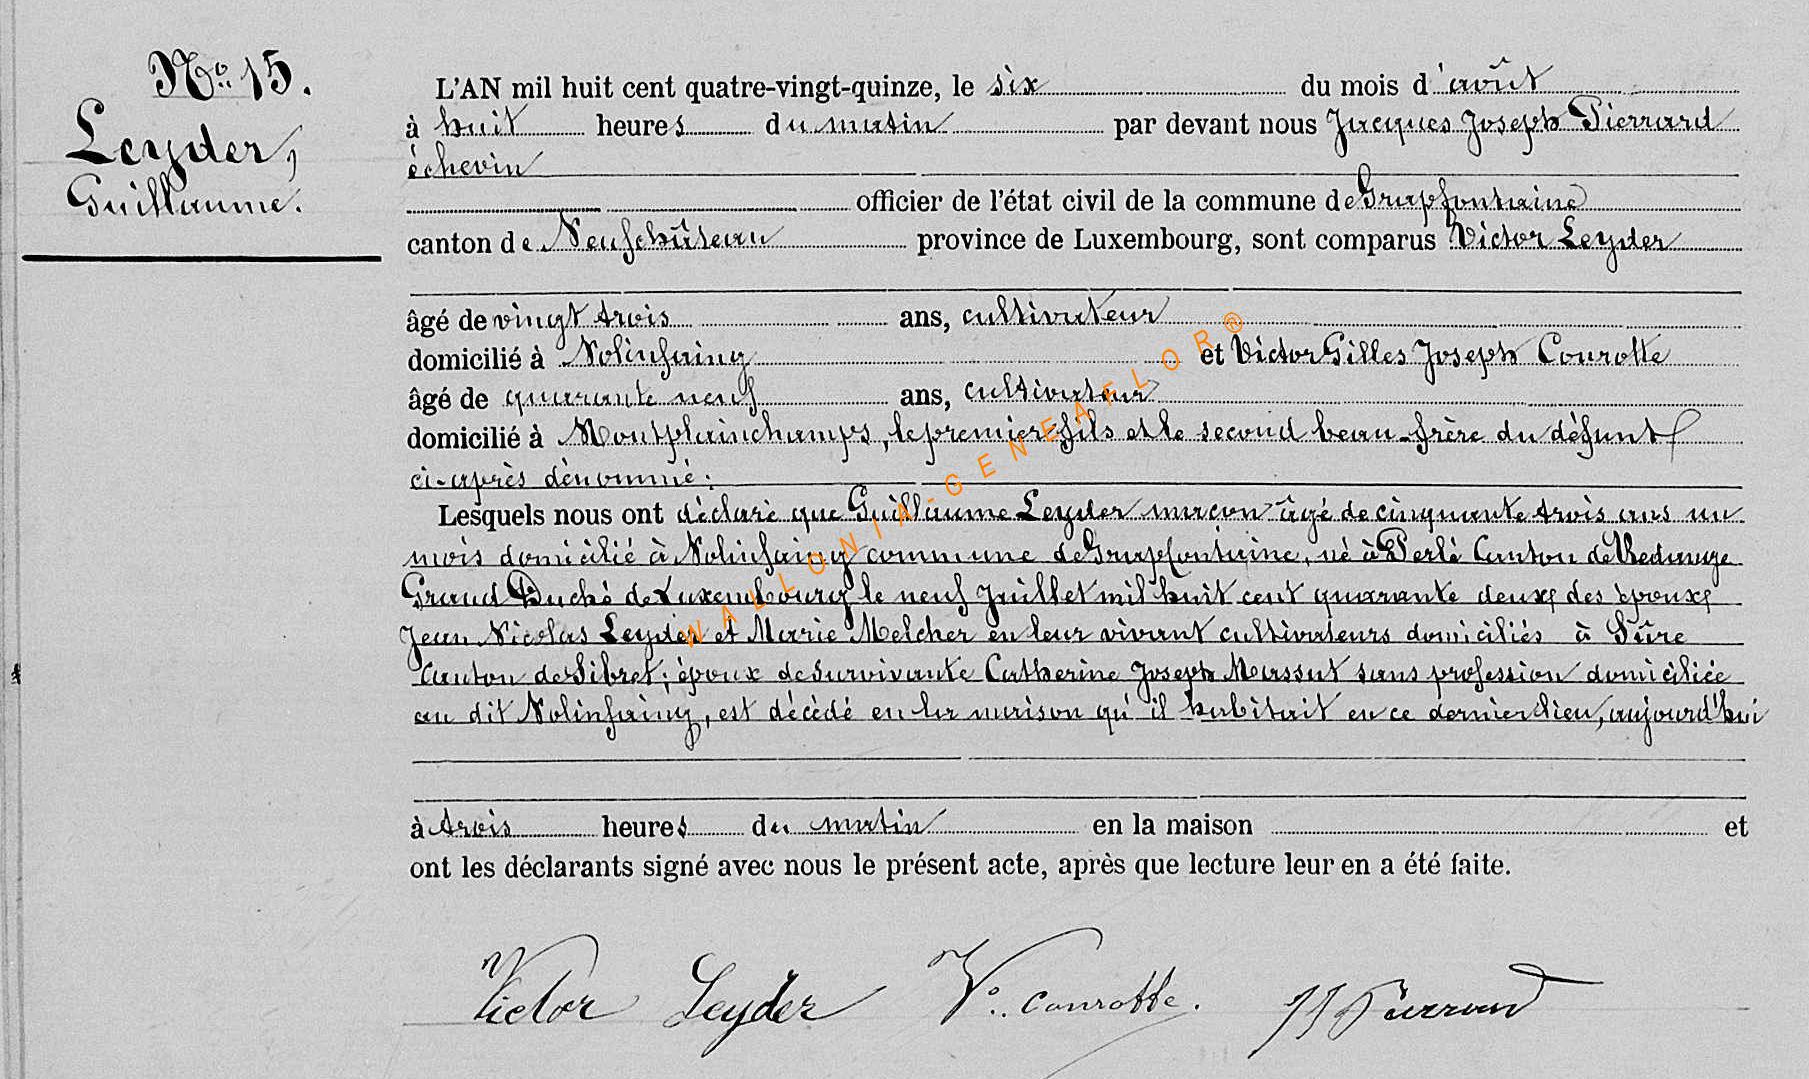 No. 15.
Leyder,
Guillaume.
L'AN mil huit cent quatre-vingt-quinze, le six du mois d'août
à huit heures du matin par devant nous Jacques Joseph Pierrard
échevin
officier de l'état civil de la commune de Grapfontaine
canton de Neufchâteau province de Luxembourg, sont comparus Victor Leyder
âgé de vingt trois ans, cultivateur
domicilié à Nolinfaing et Victor Gilles Joseph Courotte
âgé de quarante neuf ans, cultivateur
domicilié à Montplainchamps, le premier fils et le second beau-frère du défunt
ci-après dénommé;
Lesquels nous ont déclaré que Guillaume Leyder maçon âgé de cinquante trois ans un
mois domicilié à Nolinfaing commune de Grapfontaine, né à Perlé Canton de Redange
Grand Duché de Luxembourg le neuf Juillet mil huit cent quarante deux, des époux
Jean Nicolas Leyder et Marie Melcher en leur vivant cultivateurs domiciliés à Sûre
Canton de Sibret; époux de survivante Catherine Joseph Massut sans profession domiciliée
au dit Nolinfaing, est décédé en la maison qu'il habitait en ce dernier lieu, aujourd'hui
à trois heures du matin en la maison et
ont les déclarants signé avec nous le présent acte, après que lecture leur en a été faite.
Victor Leyder V. Courotte. JJ Pierrard
WALLONIA-GENEAFLOR®